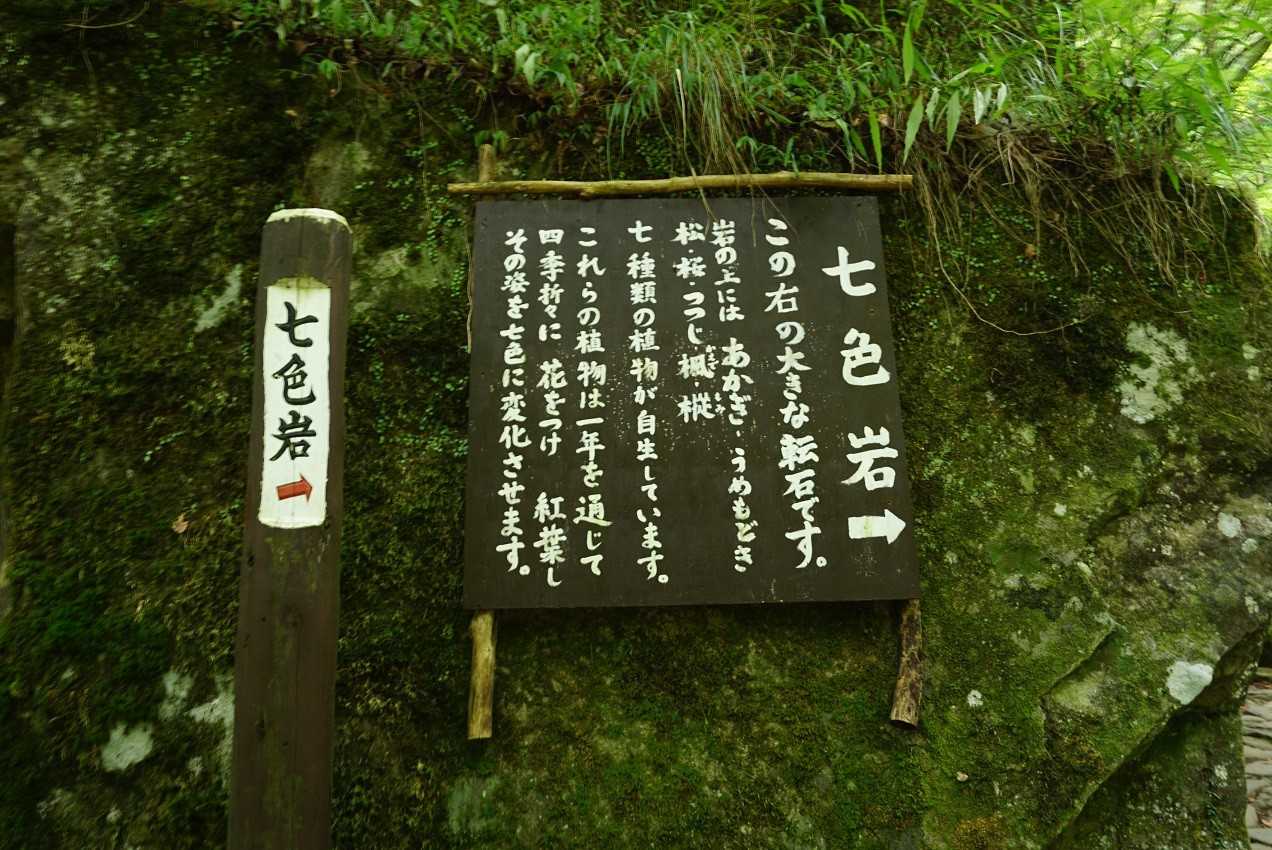 七色岩
七色岩
この右の大きな転石です。
岩の上には あかぎ・うめもどき
松・桜・つつじ・楓・樅
七種類の植物が自生しています。
これらの植物は一年を通じて
四季折々に 花をつけ 紅葉し
その姿を七色に変化させます。